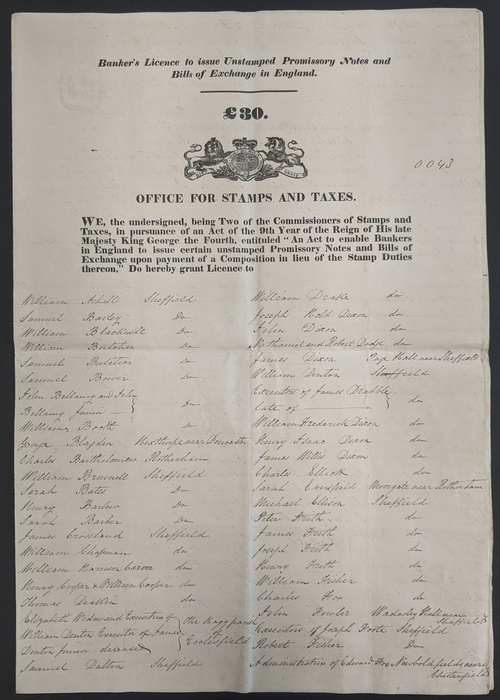 Banker's Licence to issue Unstamped Promissory Notes and
Bills of Exchange in England.
£30.
0043
OFFICE FOR STAMPS AND TAXES.
WE, the undersigned, being Two of the Commissioners of Stamps and
Taxes, in pursuance of an Act of the 9th Year of the Reign of His late
Majesty King George the Fourth, entituled "An Act to enable Bankers
in England to issue certain unstamped Promissory Notes and Bills of
Exchange upon payment of a Composition in lieu of the Stamp Duties
thereon," Do hereby grant Licence to
William Sheffield
Samuel Bailey Do
William Blackwell Do
William Do
Samuel Do
Samuel Bower Do
John Bellamy and John
Bellamy Junior Do
William Booth Do
George Blagden near Doncaster
Charles Bartholomew Rotherham
William Brownell Sheffield
Sarah Bates Do
Henry Barlow Do
Sarah Barber Do
James Crossland Sheffield
William Chapman do
William Harrison Carver do
Henry Cooper & William Cooper do
Thomas do
Elizabeth Widow and Executrix of
William Denton Executor of James
Denton Junior deceased
Ecclesfield
Samuel Dalton Sheffield
William Drake do
Joseph Holt Dixon do
John Dixon do
Nathaniel and Robert Dodge do
James Dixon Page Hall near Sheffield
William Denton Sheffield
Executors of James Drabble
late of do
William Frederick Dixon do
Henry Isaac Dixon do
James Willis Dixon do
Charles Elliott do
Sarah Moorgate near Rotherham
Michael Ellison Sheffield
Peter Frith do
James Frith do
Joseph Frith do
Henry Frith do
William Fisher do
Charles Fox do
John Fowler Wadsley Hall near
Sheffield
Executors of Joseph Foote Sheffield
Robert Fisher Do
Administratrix of Edward Fox Newbold fields near
Chesterfield